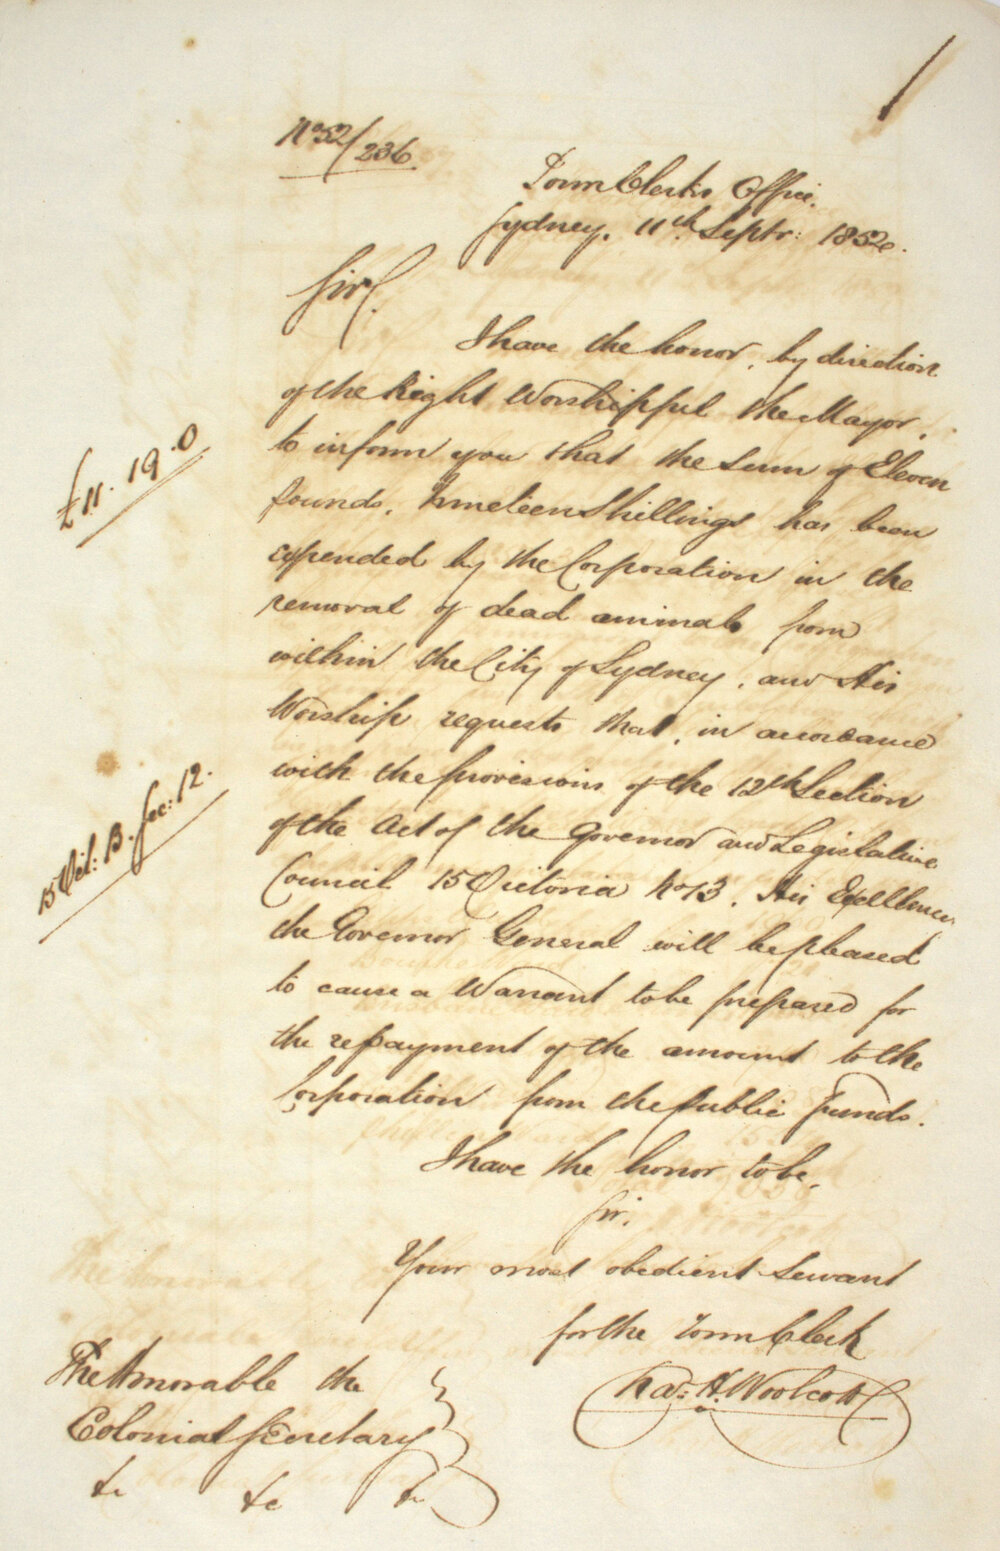 No 52/236
Town Clerk's Office.
Sydney. 11th Septr: 1852.
Sir,
I have the honor, by direction
of the Right Worshipful the Mayor,
to inform you that the sum of Eleven
£11. 19. 0
pounds, Nineteen Shillings has been
expended by the Corporation in the
removal of dead animals from
within the City of Sydney, and His
Worship requests that, in accordance
with the provisions of the 12th Section
15 Vict: 13. Sec: 12.
of the Act of the Governor and Legislative
Council 15 Victoria No 13, His Excellency
the Governor General will be pleased
to cause a Warrant to be prepared for
the repayment of the amount to the
Corporation from the public funds.
I have the honor to be,
Sir,
Your most obedient Servant
for the Town Clerk
Chas: H. Woolcott
The Honorable the
Colonial Secretary
&c &c &c